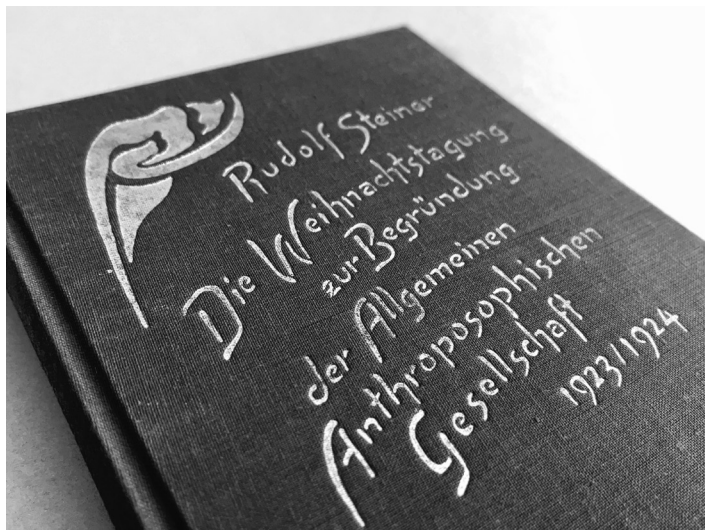 Rudolf Steiner
Die Weihnachtstagung
zur Begründung
der Allgemeinen
Anthroposophischen
Gesellschaft
1923/1924